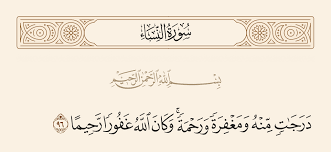 سُورَةُ النِّسَاءِ
بِسْمِ اللَّهِ الرَّحْمَٰنِ الرَّحِيمِ
دَرَجَٰتٍ مِّنْهُ وَمَغْفِرَةً وَرَحْمَةً ۚ وَكَانَ ٱللَّهُ غَفُورًا رَّحِيمًا ٩٦